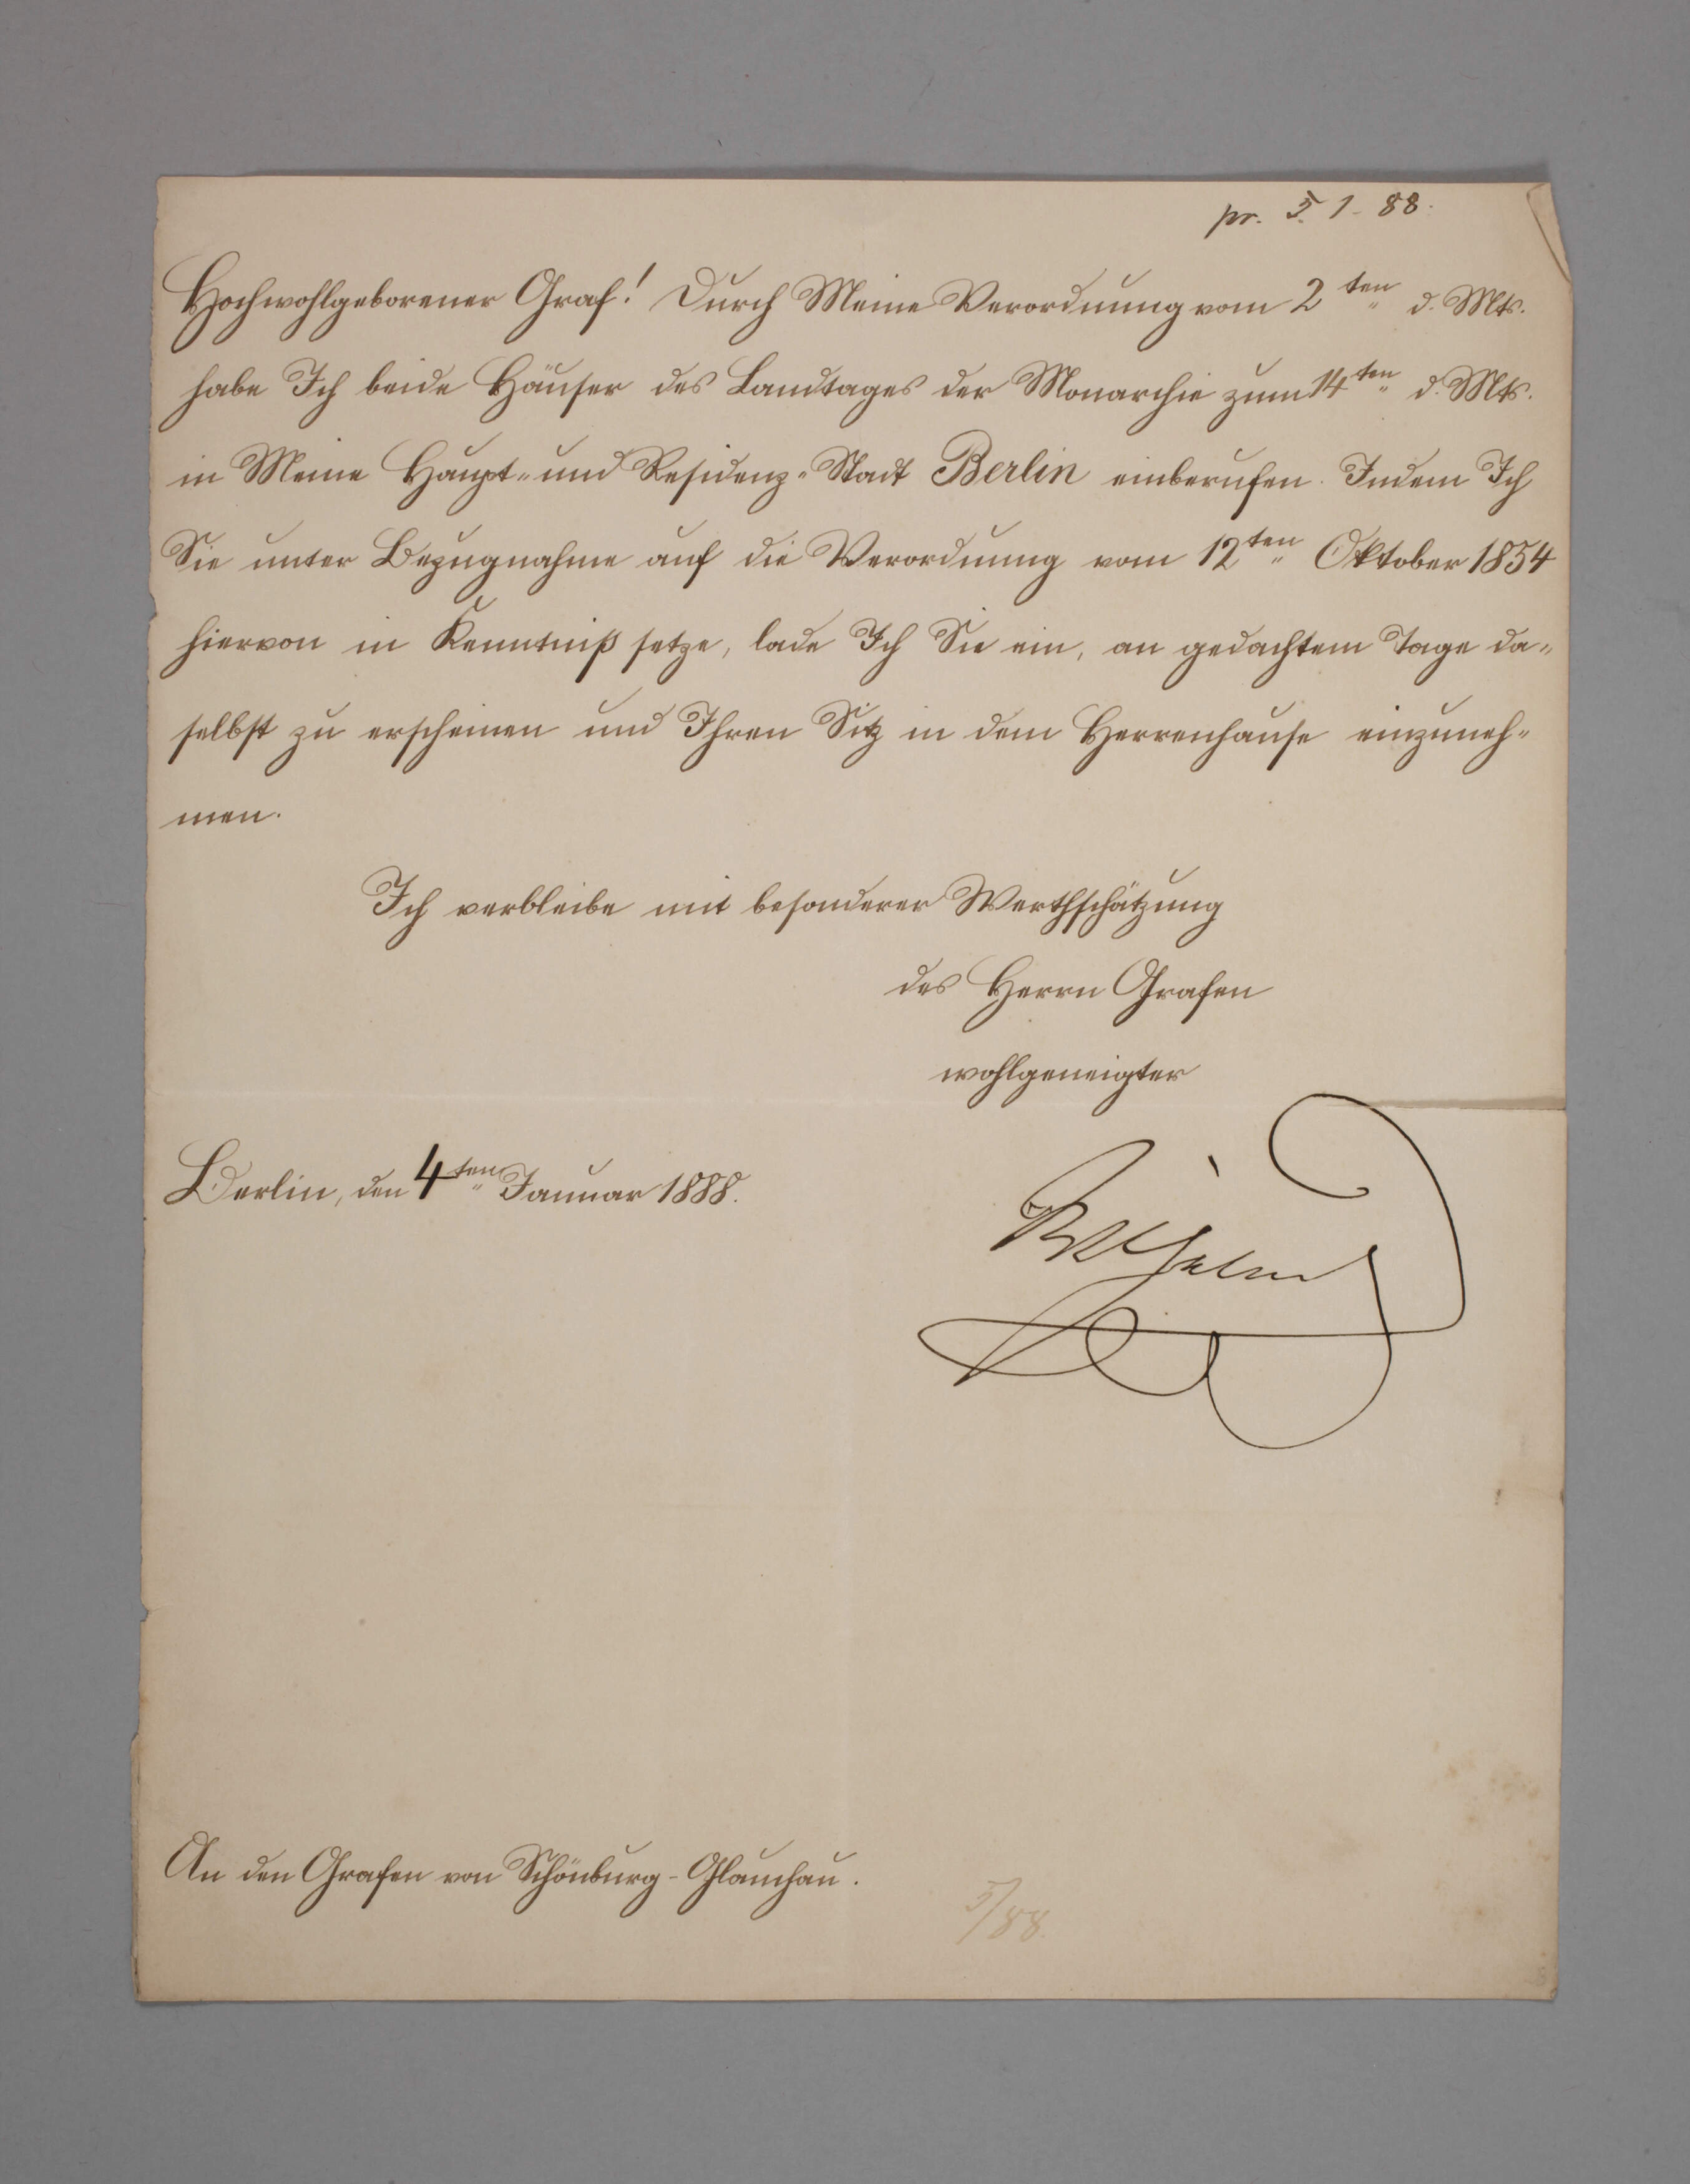 pr. 5. 1. 88.
Hochwohlgeborener Graf! Durch Meine Verordnung vom 2ten d. Mts.
habe Ich beide Häuser des Landtages der Monarchie zum 14ten d. Mts.
in Meine Haupt- und Residenz-Stadt Berlin einberufen. Indem Ich
Sie unter Bezugnahme auf die Verordnung vom 12ten Oktober 1854
hiervon in Kenntniß setze, lade Ich Sie ein, an gedachtem Tage da-
selbst zu erscheinen und Ihren Sitz in dem Herrenhause einzuneh-
men.
Ich verbleibe mit besonderer Werthschätzung
des Herrn Grafen
wohlgeneigter
Berlin, den 4ten Januar 1888.
Wilhelm
An den Grafen von Schönburg-Glauchau.
5/88.